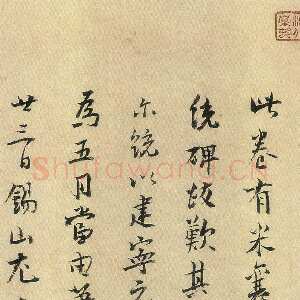 此卷有米襄
統碑故歎其
尔統以建寧元
為五月當由
廿三日錫山尤
Shufawang.cn